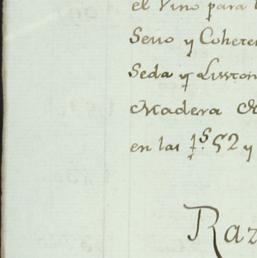 el Vino para
Sevo y Cohete
Seda y
Madera
en las 1.ˢ 52 y
Raz